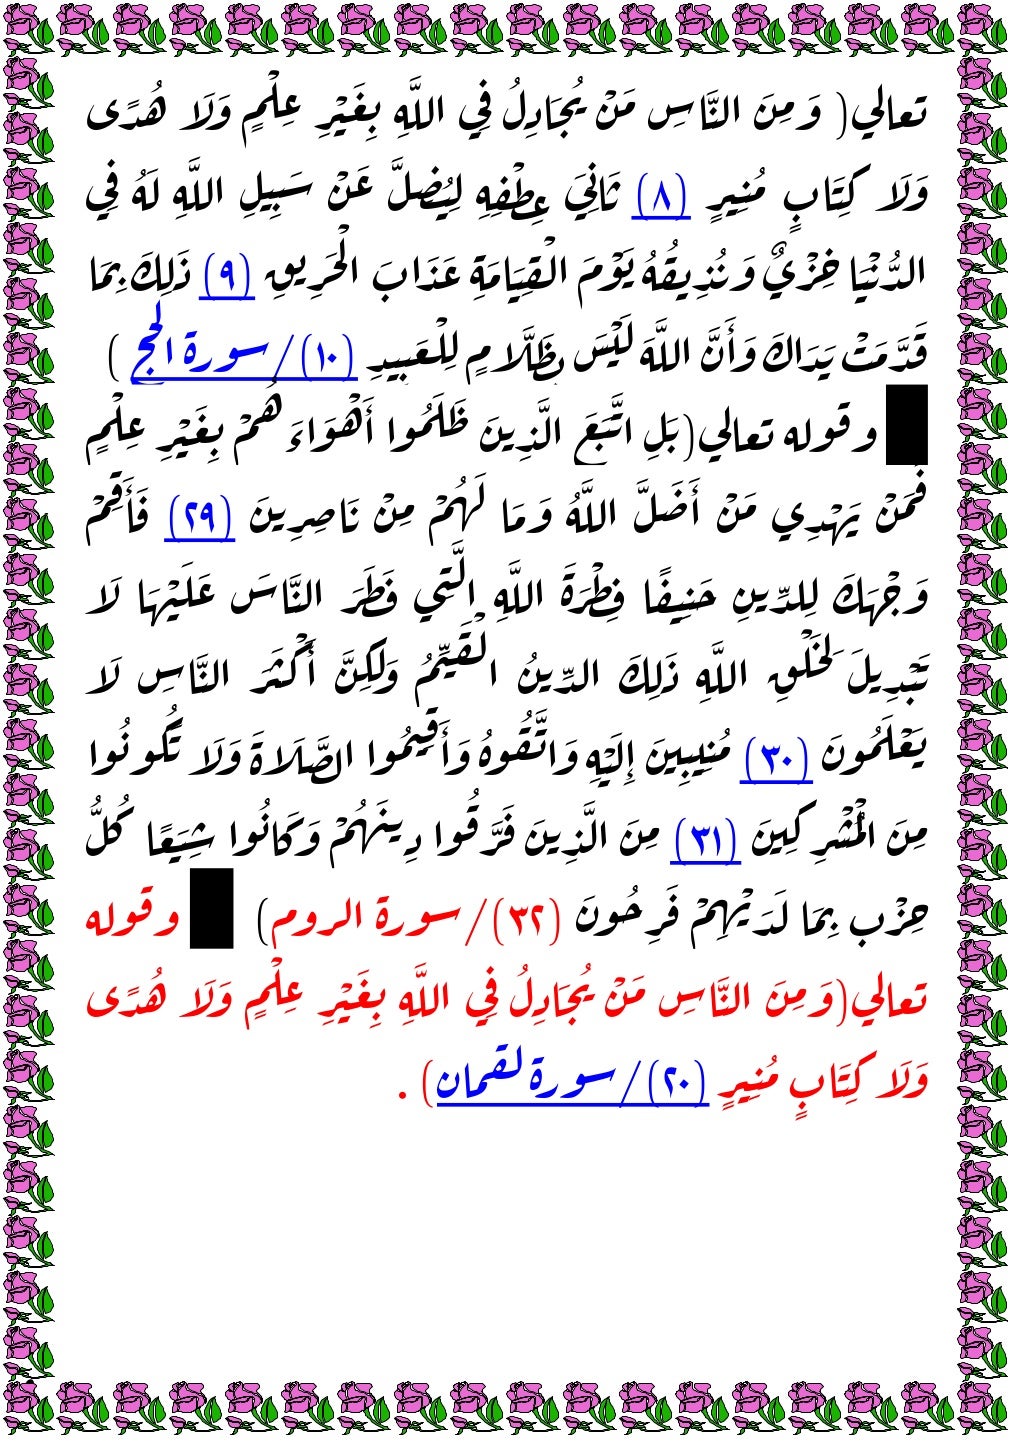 تعالي( وَمِنَ النَّاسِ مَنْ يُجَادِلُ فِي اللَّهِ بِغَيْرِ عِلْمٍ وَلَا هُدًى
وَلَا كِتَابٍ مُنِيرٍ (٨) ثَانِيَ عِطْفِهِ لِيُضِلَّ عَنْ سَبِيلِ اللَّهِ لَهُ فِي
الدُّنْيَا خِزْيٌ وَنُذِيقُهُ يَوْمَ الْقِيَامَةِ عَذَابَ الْحَرِيقِ (٩) ذَلِكَ بِمَا
قَدَّمَتْ يَدَاكَ وَأَنَّ اللَّهَ لَيْسَ بِظَلَّامٍ لِلْعَبِيدِ (١٠)/ سورة الحج )
و قوله تعالي(بَلِ اتَّبَعَ الَّذِينَ ظَلَمُوا أَهْوَاءَهُمْ بِغَيْرِ عِلْمٍ
فَمَنْ يَهْدِي مَنْ أَضَلَّ اللَّهُ وَمَا لَهُمْ مِنْ نَاصِرِينَ (٢٩) فَأَقِمْ
وَجْهَكَ لِلدِّينِ حَنِيفًا فِطْرَةَ اللَّهِ الَّتِي فَطَرَ النَّاسَ عَلَيْهَا لَا
تَبْدِيلَ لِخَلْقِ اللَّهِ ذَلِكَ الدِّينُ الْقَيِّمُ وَلَكِنَّ أَكْثَرَ النَّاسِ لَا
يَعْلَمُونَ (٣٠) مُنِيبِينَ إِلَيْهِ وَاتَّقُوهُ وَأَقِيمُوا الصَّلَاةَ وَلَا تَكُونُوا
مِنَ الْمُشْرِكِينَ (٣١) مِنَ الَّذِينَ فَرَّقُوا دِينَهُمْ وَكَانُوا شِيَعًا كُلُّ
حِزْبٍ بِمَا لَدَيْهِمْ فَرِحُونَ (٣٢)/ سورة الروم) و قوله
تعالي(وَمِنَ النَّاسِ مَنْ يُجَادِلُ فِي اللَّهِ بِغَيْرِ عِلْمٍ وَلَا هُدًى
وَلَا كِتَابٍ مُنِيرٍ (٢٠)/ سورة لقمان) .